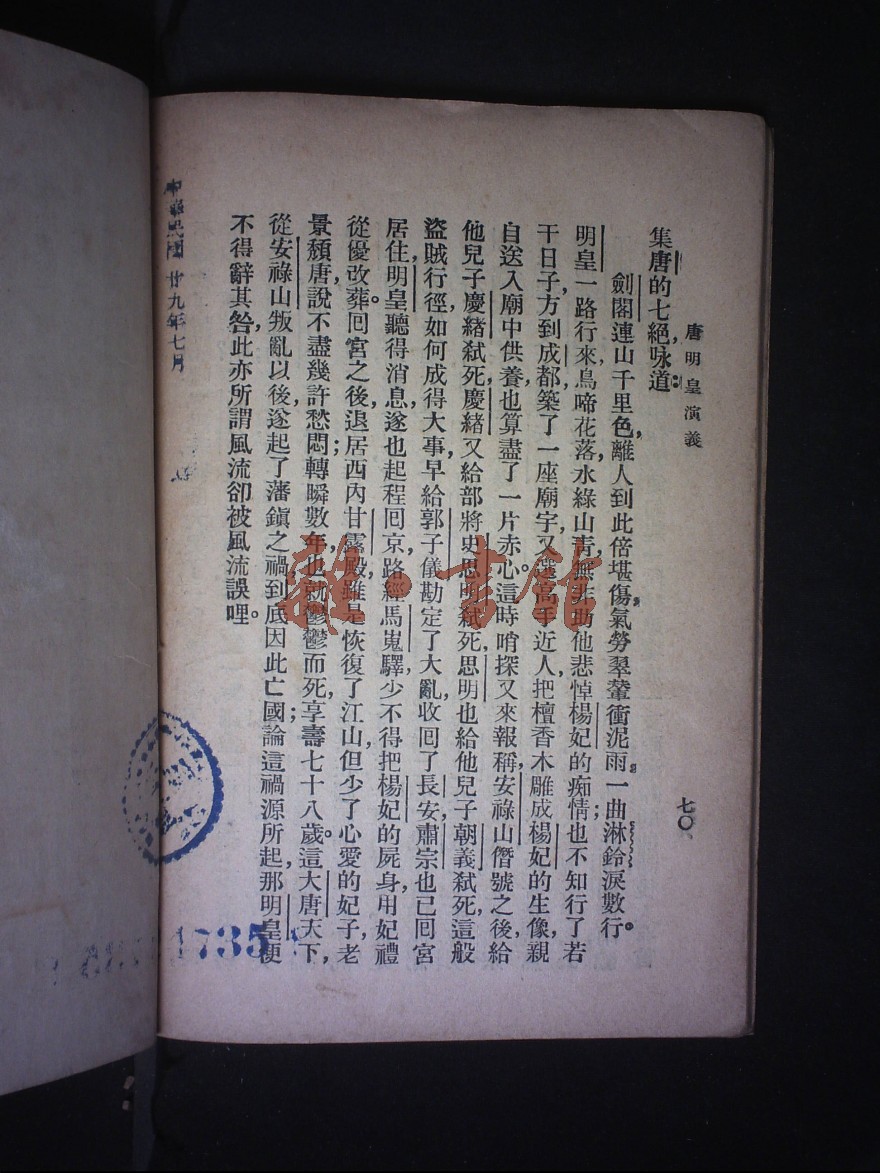 唐明皇演義
七〇
集唐的七絕，咏道：
劍閣連山千里色，離人到此倍堪傷。氣勞翠輦衝泥雨，一曲淋鈴淚數行。
明皇一路行來，鳥啼花落，水綠山青，無非助他悲悼楊妃的痴情；也不知行了若
干日子，方到成都，築了一座廟宇，又選高手近人，把檀香木雕成楊妃的生像，親
自送入廟中供養，也算盡了一片赤心。這時哨探又來報稱，安祿山僭號之後，給
他兒子慶緒弒死，慶緒又給部將史思明弒死，思明也給他兒子朝義弒死，這般
盜賊行徑，如何成得大事，早給郭子儀勘定了大亂，收回了長安，肅宗也已回宮
居住，明皇聽得消息，遂也起程回京，路經馬嵬驛，少不得把楊妃的屍身，用妃禮
從優改葬。回宮之後，退居西內甘露殿，雖是恢復了江山，但少了心愛的妃子，老
景頹唐，說不盡幾許愁悶；轉瞬數年，也就鬱鬱而死，享壽七十八歲。這大唐天下，
從安祿山叛亂以後，遂起了藩鎮之禍，到底因此亡國；論這禍源所起，那明皇便
不得辭其咎，此亦所謂風流卻被風流誤哩。
中華民國廿九年七月
1735